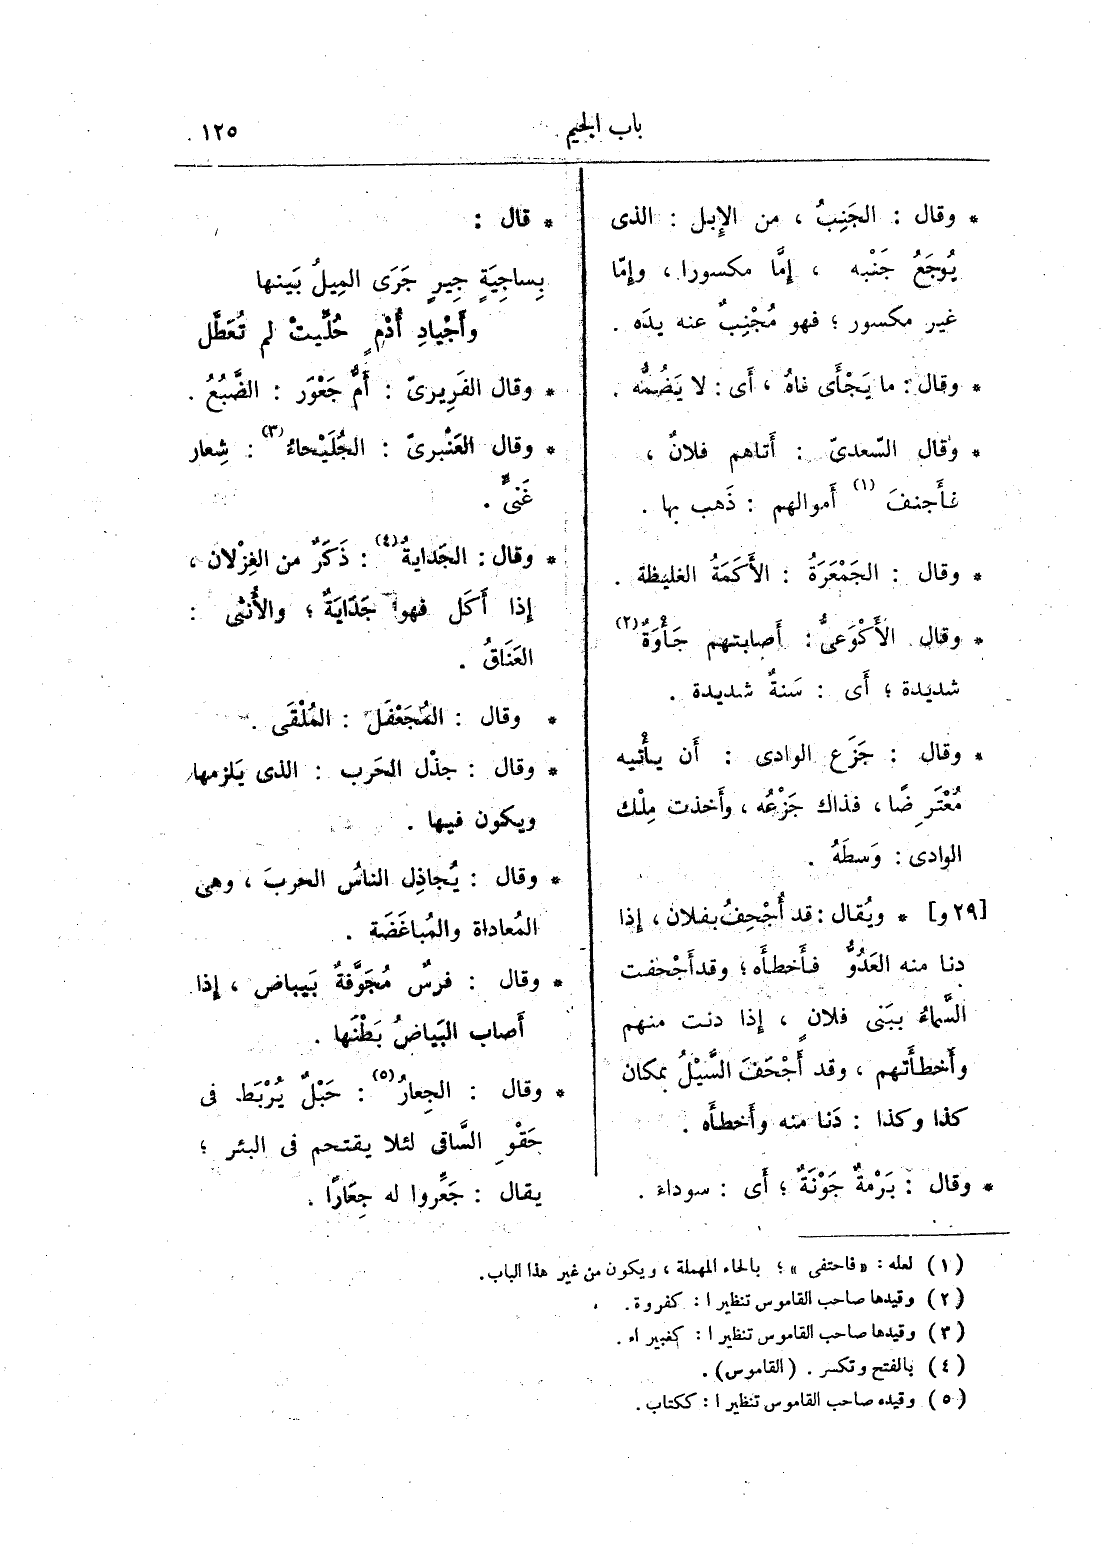 باب الجيم
١٢٥
* وقال : الجَنِبُ ، من الإِبل : الذى
يُوجَعُ جَنْبه ، إِمَّا مكسورا ، وإِمّا
غير مكسور ؛ فهو مُجْنِبٌ عنه يدَه .
* وقال : ما يَجْأَى فاهُ ، أَى : لا يَضُمُّه .
* وقال السّعدىّ : أَتاهم فلانٌ ،
فأَجنفَ (١) أَموالهم : ذَهب بها .
* وقال : الجَمْعَرَةُ : الأَكَمَةُ الغليظة .
* وقال الأَكْوَعىُّ : أَصابتهم جَأْوَةٌ (٢)
شديدة ؛ أَى : سَنةٌ شديدة .
* وقال : جَزَع الوادى : أَن يأْتيه
مُعْتَرِضًا ، فذاك جَزْعُه ، وأَخذت مِلْك
الوادى : وَسطَهُ .
[٢٩ و] * ويُقال : قد أُجْحِفُ بفلان ، إِذا
دنا منه العَدُوُّ فأَخطأَه ؛ وقد أَجْحفت
السَّماءُ ببَنى فلانٍ ، إِذا دنت منهم
وأَخطأَتهم ، وقد أَجْحَفَ السَّيْلُ بمكان
كذا وكذا : دَنا منه وأَخطأَه .
* وقال : بَرْمةٌ جَوْنَةٌ ؛ أَى : سوداء .
* قال :
بِساجِيَةٍ جِيرٍ جَرَى المِيلُ بَينها
وأَجْيادِ أُدْمٍ حُلِّيتْ لم تُعَطَّل
* وقال الفَرِيرىّ : أُمُّ جَعْوَر : الضَّبُعُ .
* وقال العَنْبرىّ : الجُلَيْحاءُ (٣) : شِعار
غَنىٍّ .
* وقال : الجَدايةُ (٤) : ذَكَرٌ من الغِزْلان ،
إِذا أَكَل فهو جَدَايَةٌ ؛ والأُنثى :
العَنَاقُ .
* وقال : المُجَعْفَل : المُلْقَى .
* وقال : جذْل الحَرب : الذى يَلزمها
ويكون فيها .
* وقال : يُجاذِل الناسُ الحربَ ، وهى
المُعاداة والمُباغَضَة .
* وقال : فرسٌ مُجَوَّفةٌ بَبياض ، إِذا
أَصاب البَياضُ بَطْنَها .
* وقال : الجِعارُ (٥) : حَبْلٌ يُرْبَط فى
حَقْوِ السَّاقى لئلا يقتحم فى البئر ؛
يقال : جَعِّروا له جِعَارًا .
(١) لعله : «فاحتفى» ؛ بالحاء المهملة ، ويكون من غير هذا الباب.
(٢) وقيدها صاحب القاموس تنظيرا : كفروة .
(٣) وقيدها صاحب القاموس تنظيرا : كغبيراء .
(٤) بالفتح وتكسر . (القاموس) .
(٥) وقيده صاحب القاموس تنظيرا : ككتاب .